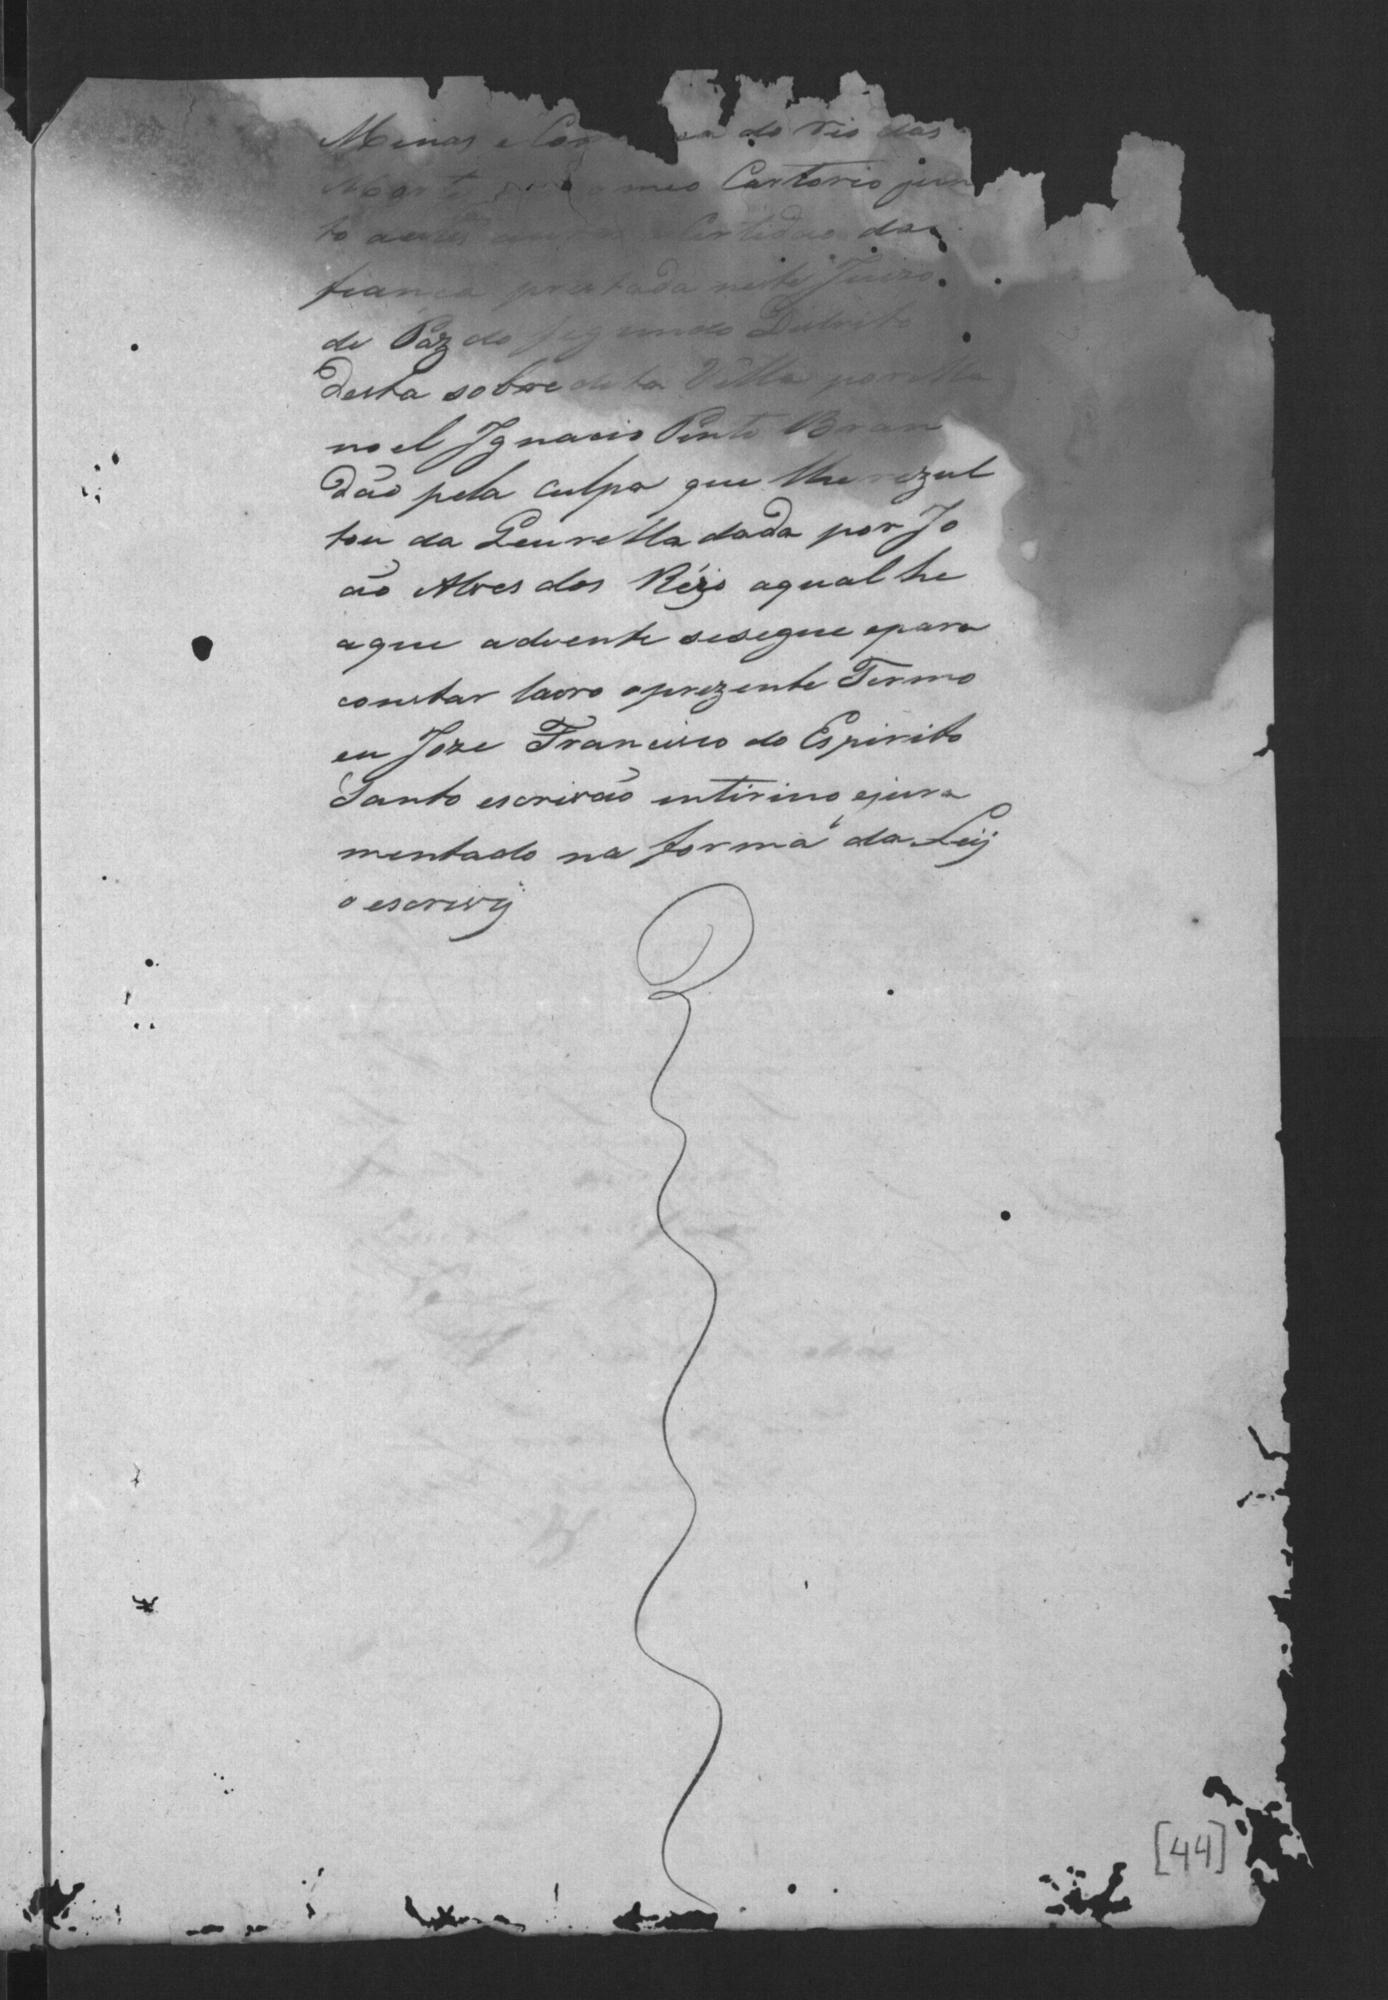 Minas e do rio das
meo Cartorio jun
to Certidao da
fiança prestada neste Juizo
de Paz do segundo Destrito
desta sobredita Villa por Ma
noel Ignacio Pinto Bran
dão pela culpa que lhe rezul
tou da Querella dada por Jo
ão Alves dos Reis aqual he
aque adiente sesegue epara
constar lavro oprezente Termo
eu Joze Francisco do Espirito
Santo escrivão intirino ejura
mentado na forma da Leij
o escrivy
[44]